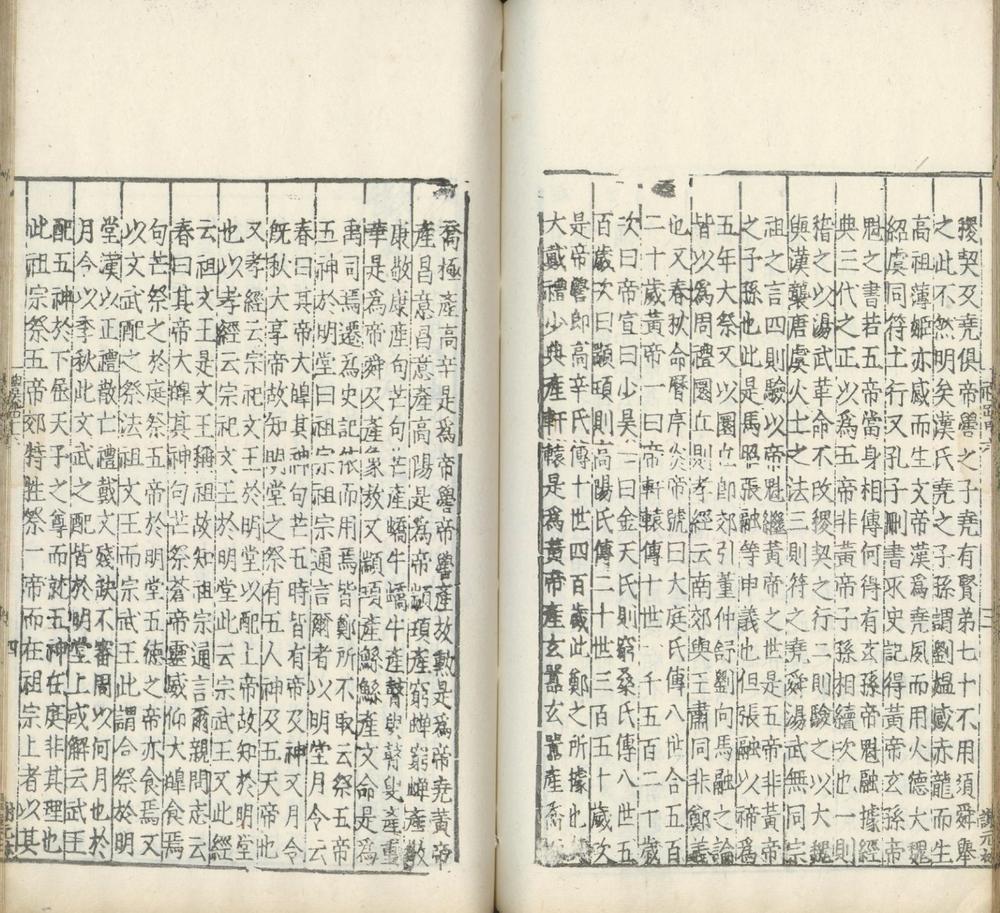 稷契及堯俱帝嚳之子堯有賢弟七十不用須舜舉
之此不然明矣漢氏堯之子孫謂劉媼感赤龍而生
高祖薄姬亦感而生文帝漢為堯胤而用火德大魏
紹虞同符土行又孔子刪書求史記得黃帝玄孫帝
魁之書若五帝當身相傳何得有玄孫帝魁融據經
典三代之正以為五帝非黃帝子孫相續次也一則
稽之以湯武革命不改稷契之行二則驗之以大魏
與漢襲唐虞火土之法三則符之堯舜湯武無同宗
祖之言四則驗以帝魁繼黃帝之世是五帝非黃帝
之子孫也此是馬昭張融等申義也但張融以禘為
五年大祭又以圜丘即郊引董仲舒劉向馬融之論
皆以為周禮圜丘則孝經云南郊與王肅同非鄭義
也又春秋命曆序炎帝號曰大庭氏傳八世合五百
二十歲黃帝一曰帝軒轅傳十世一千五百二十歲
次曰帝宣曰少昊一曰金天氏則窮桑氏傳八世五
百歲次曰顓頊則高陽氏傳二十世三百五十歲次
是帝嚳即高辛氏傳十世四百歲此鄭之所據也
大戴禮少典產軒轅是為黃帝產玄囂玄囂產喬
喬極產高辛是為帝嚳帝嚳產故勳是為帝堯黃帝
產昌意昌意產高陽是為帝顓頊產窮蟬窮蟬產敬
康敬康產句芒句芒產蟜牛蟜牛產瞽叟瞽叟產重
華是為帝舜及產象敖又顓頊產鯀鯀產文命是為
禹司馬遷為史記依而用焉皆鄭所不取云祭五帝
五神於明堂曰祖宗祖宗通言爾者以明堂月令云
春曰其帝大皞其神句芒五時皆有帝及神又月令
旣秋大享帝故知明堂之祭有五人神及五天帝也
又孝經云宗祀文王於明堂以配上帝故知於明堂
也以孝經云宗祀文王於明堂此云宗武王又此經
云祖文王是文王稱祖故知祖宗通言爾親問志云
春曰其帝大皞其神句芒祭蒼帝靈威仰大皞食焉
句芒祭之於庭祭五帝於明堂五德之帝亦食焉又
以文武配之祭法祖文王而宗武王此謂合祭於明
堂正漢以正禮散亡禮戴文殘缺不審周以何月也於
月令以季秋此文武之配皆於明堂上或解云武王
配五神於下屈天子之尊而就五神在庭非其理也
此祖宗祭五帝郊特牲祭一帝而在祖宗上者以其
四